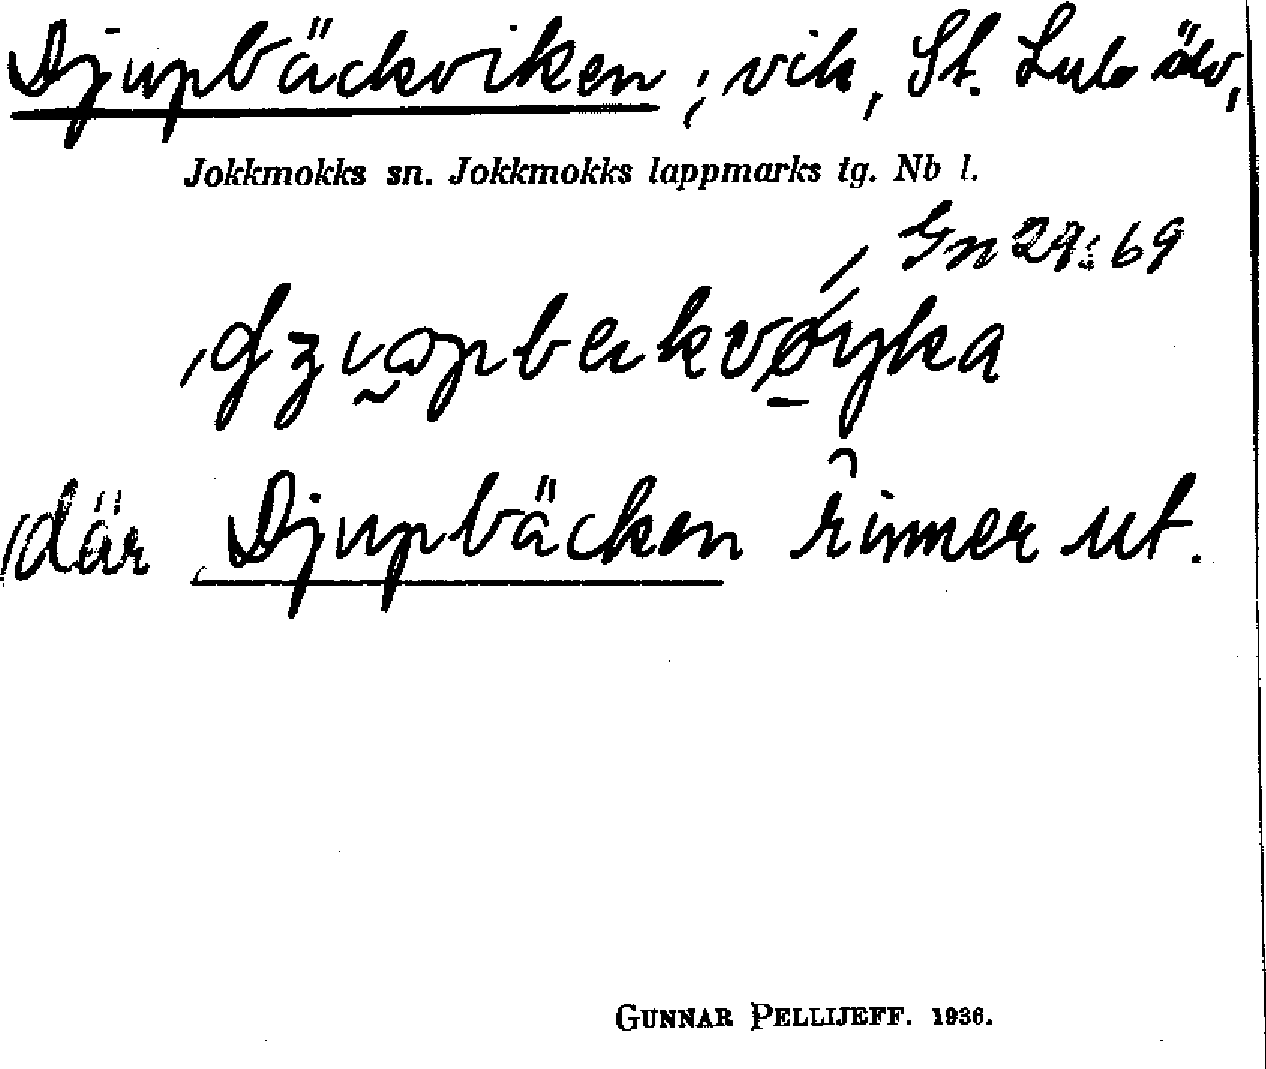 Djupbäckviken; vik, St. Lule älv,
Jokkmokks sn. Jokkmokks lappmarks tg. Nb l.
Gn 29:69
där Djupbäcken rinner ut.
GUNNAR PELLIJEFF. 1936.